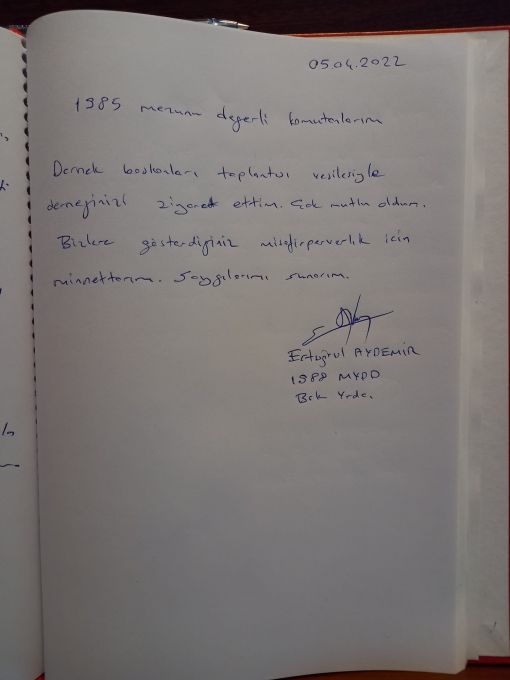 05.04.2022
1985 mezunu değerli komutanlarım
Dernek başkanları toplantısı vesilesiyle
derneğinizi ziyaret ettim. Çok mutlu oldum.
Bizlere gösterdiğiniz misafirperverlik için
minnettarım. Saygılarımı sunarım.
Ertuğrul AYDEMİR
1988 MYDD
Bşk Yrdc.